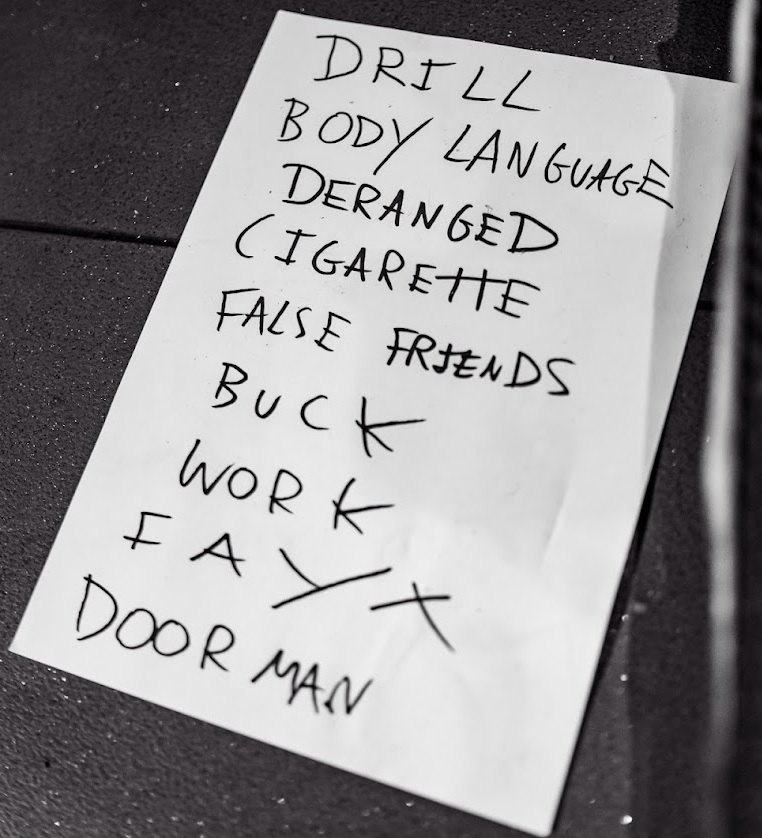 DRILL
BODY LANGUAGE
DERANGED
CIGARETTE
FALSE FRIENDS
BUCK
WORK
FAYX
DOORMAN